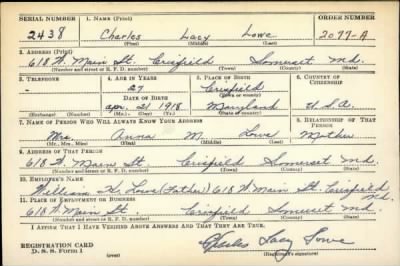 SERIAL NUMBER 1. NAME (Print) ORDER NUMBER
2438 Charles Lacy Lowe 2077-A
(First) (Middle) (Last)
2. ADDRESS (Print)
618 W. Main St. Crisfield Somerset Md.
(Number and street or R. F. D. number) (Town) (County) (State)
3. TELEPHONE 4. AGE IN YEARS 5. PLACE OF BIRTH 6. COUNTRY OF CITIZENSHIP
- Crisfield
DATE OF BIRTH (Town or county)
Apr. 21 1918 Maryland U.S.A.
(Exchange) (Number) (Mo.) (Day) (Yr.) (State or country)
7. NAME OF PERSON WHO WILL ALWAYS KNOW YOUR ADDRESS 8. RELATIONSHIP OF THAT PERSON
Mrs. Anna M. Lowe Mother
(Mr., Mrs., Miss) (First) (Middle) (Last)
9. ADDRESS OF THAT PERSON
618 W. Main St. Crisfield Somerset Md.
(Number and street or R. F. D. number) (Town) (County) (State)
10. EMPLOYER'S NAME
William H. Lowe (Father) 618 W. Main St. Crisfield Md.
11. PLACE OF EMPLOYMENT OR BUSINESS
618 W. Main St. Crisfield Somerset Md.
(Number and street or R. F. D. number) (Town) (County) (State)
I AFFIRM THAT I HAVE VERIFIED ABOVE ANSWERS AND THAT THEY ARE TRUE.
REGISTRATION CARD
D. S. S. Form 1 (over) Charles Lacy Lowe